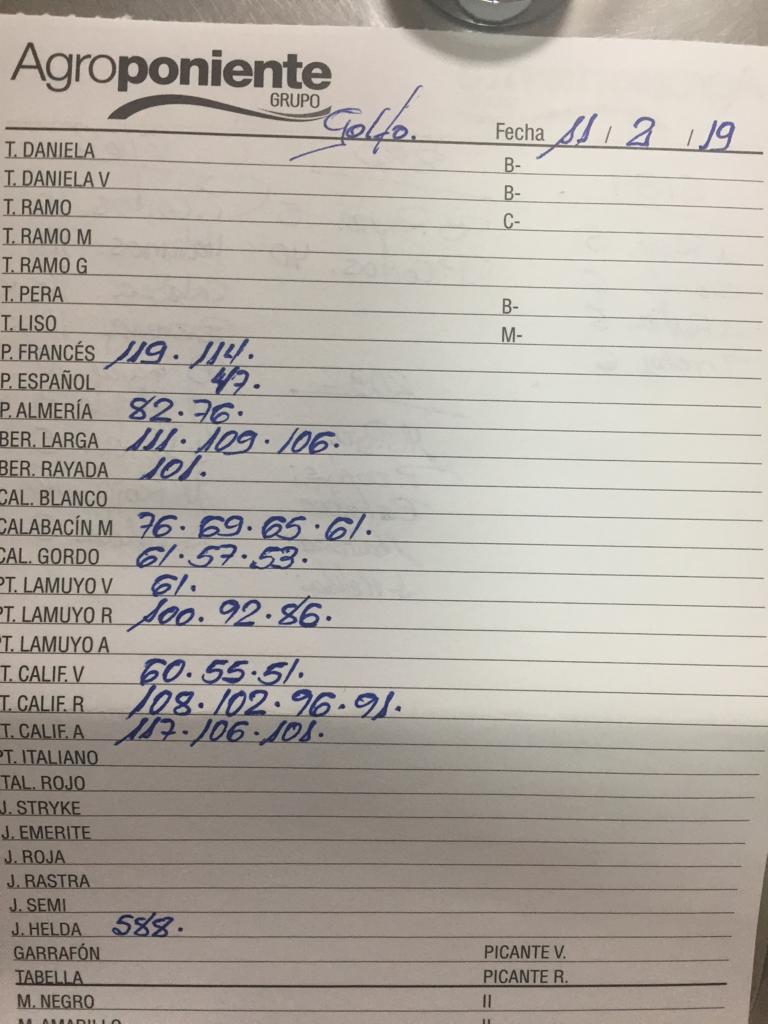 Agroponiente
GRUPO
Golfo. Fecha 11 / 2 / 19
T. DANIELA B-
T. DANIELA V B-
T. RAMO C-
T. RAMO M
T. RAMO G
T. PERA B-
T. LISO M-
P. FRANCÉS 119. 114.
P. ESPAÑOL 47.
P. ALMERÍA 82. 76.
BER. LARGA 111. 109. 106.
BER. RAYADA 101.
CAL. BLANCO
CALABACÍN M 76. 69. 65. 61.
CAL. GORDO 61. 57. 53.
PT. LAMUYO V 61.
PT. LAMUYO R 100. 92. 86.
PT. LAMUYO A
T. CALIF. V 60. 55. 51.
T. CALIF. R 108. 102. 96. 91.
T. CALIF. A 117. 106. 101.
PT. ITALIANO
TAL. ROJO
J. STRYKE
J. EMERITE
J. ROJA
J. RASTRA
J. SEMI
J. HELDA 588.
GARRAFÓN PICANTE V.
TABELLA PICANTE R.
M. NEGRO II
M. AMARILLO II